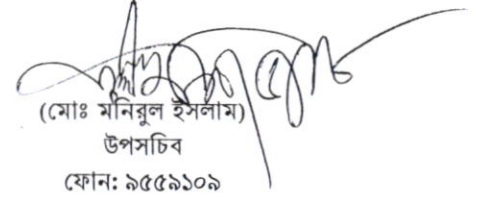 (মোঃ মনিরুল ইসলাম)
উপসচিব
ফোন: ৯৫৫৯১০৯